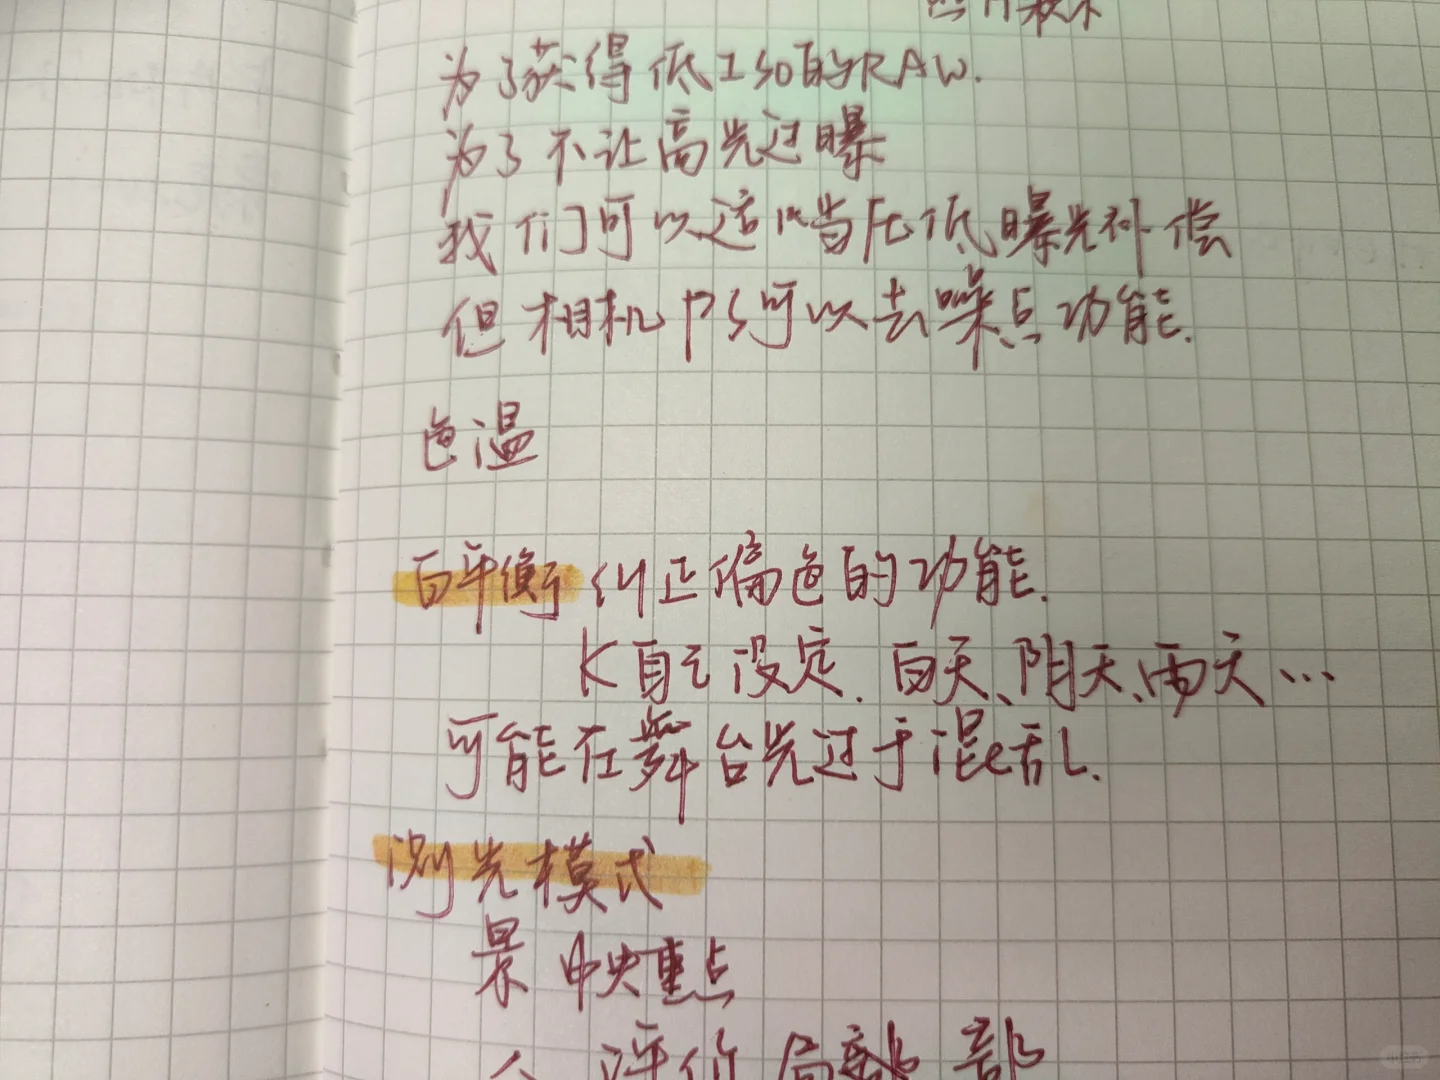 为了获得低ISO的RAW.
为了不让高光过曝
我们可以适当压低曝光补偿
但相机PS可以去噪点功能.
色温
白平衡 纠正偏色的功能.
K自己设定. 白天、阴天、雨天…
可能在舞台光过于混乱.
测光模式
中央重点
评价 局部